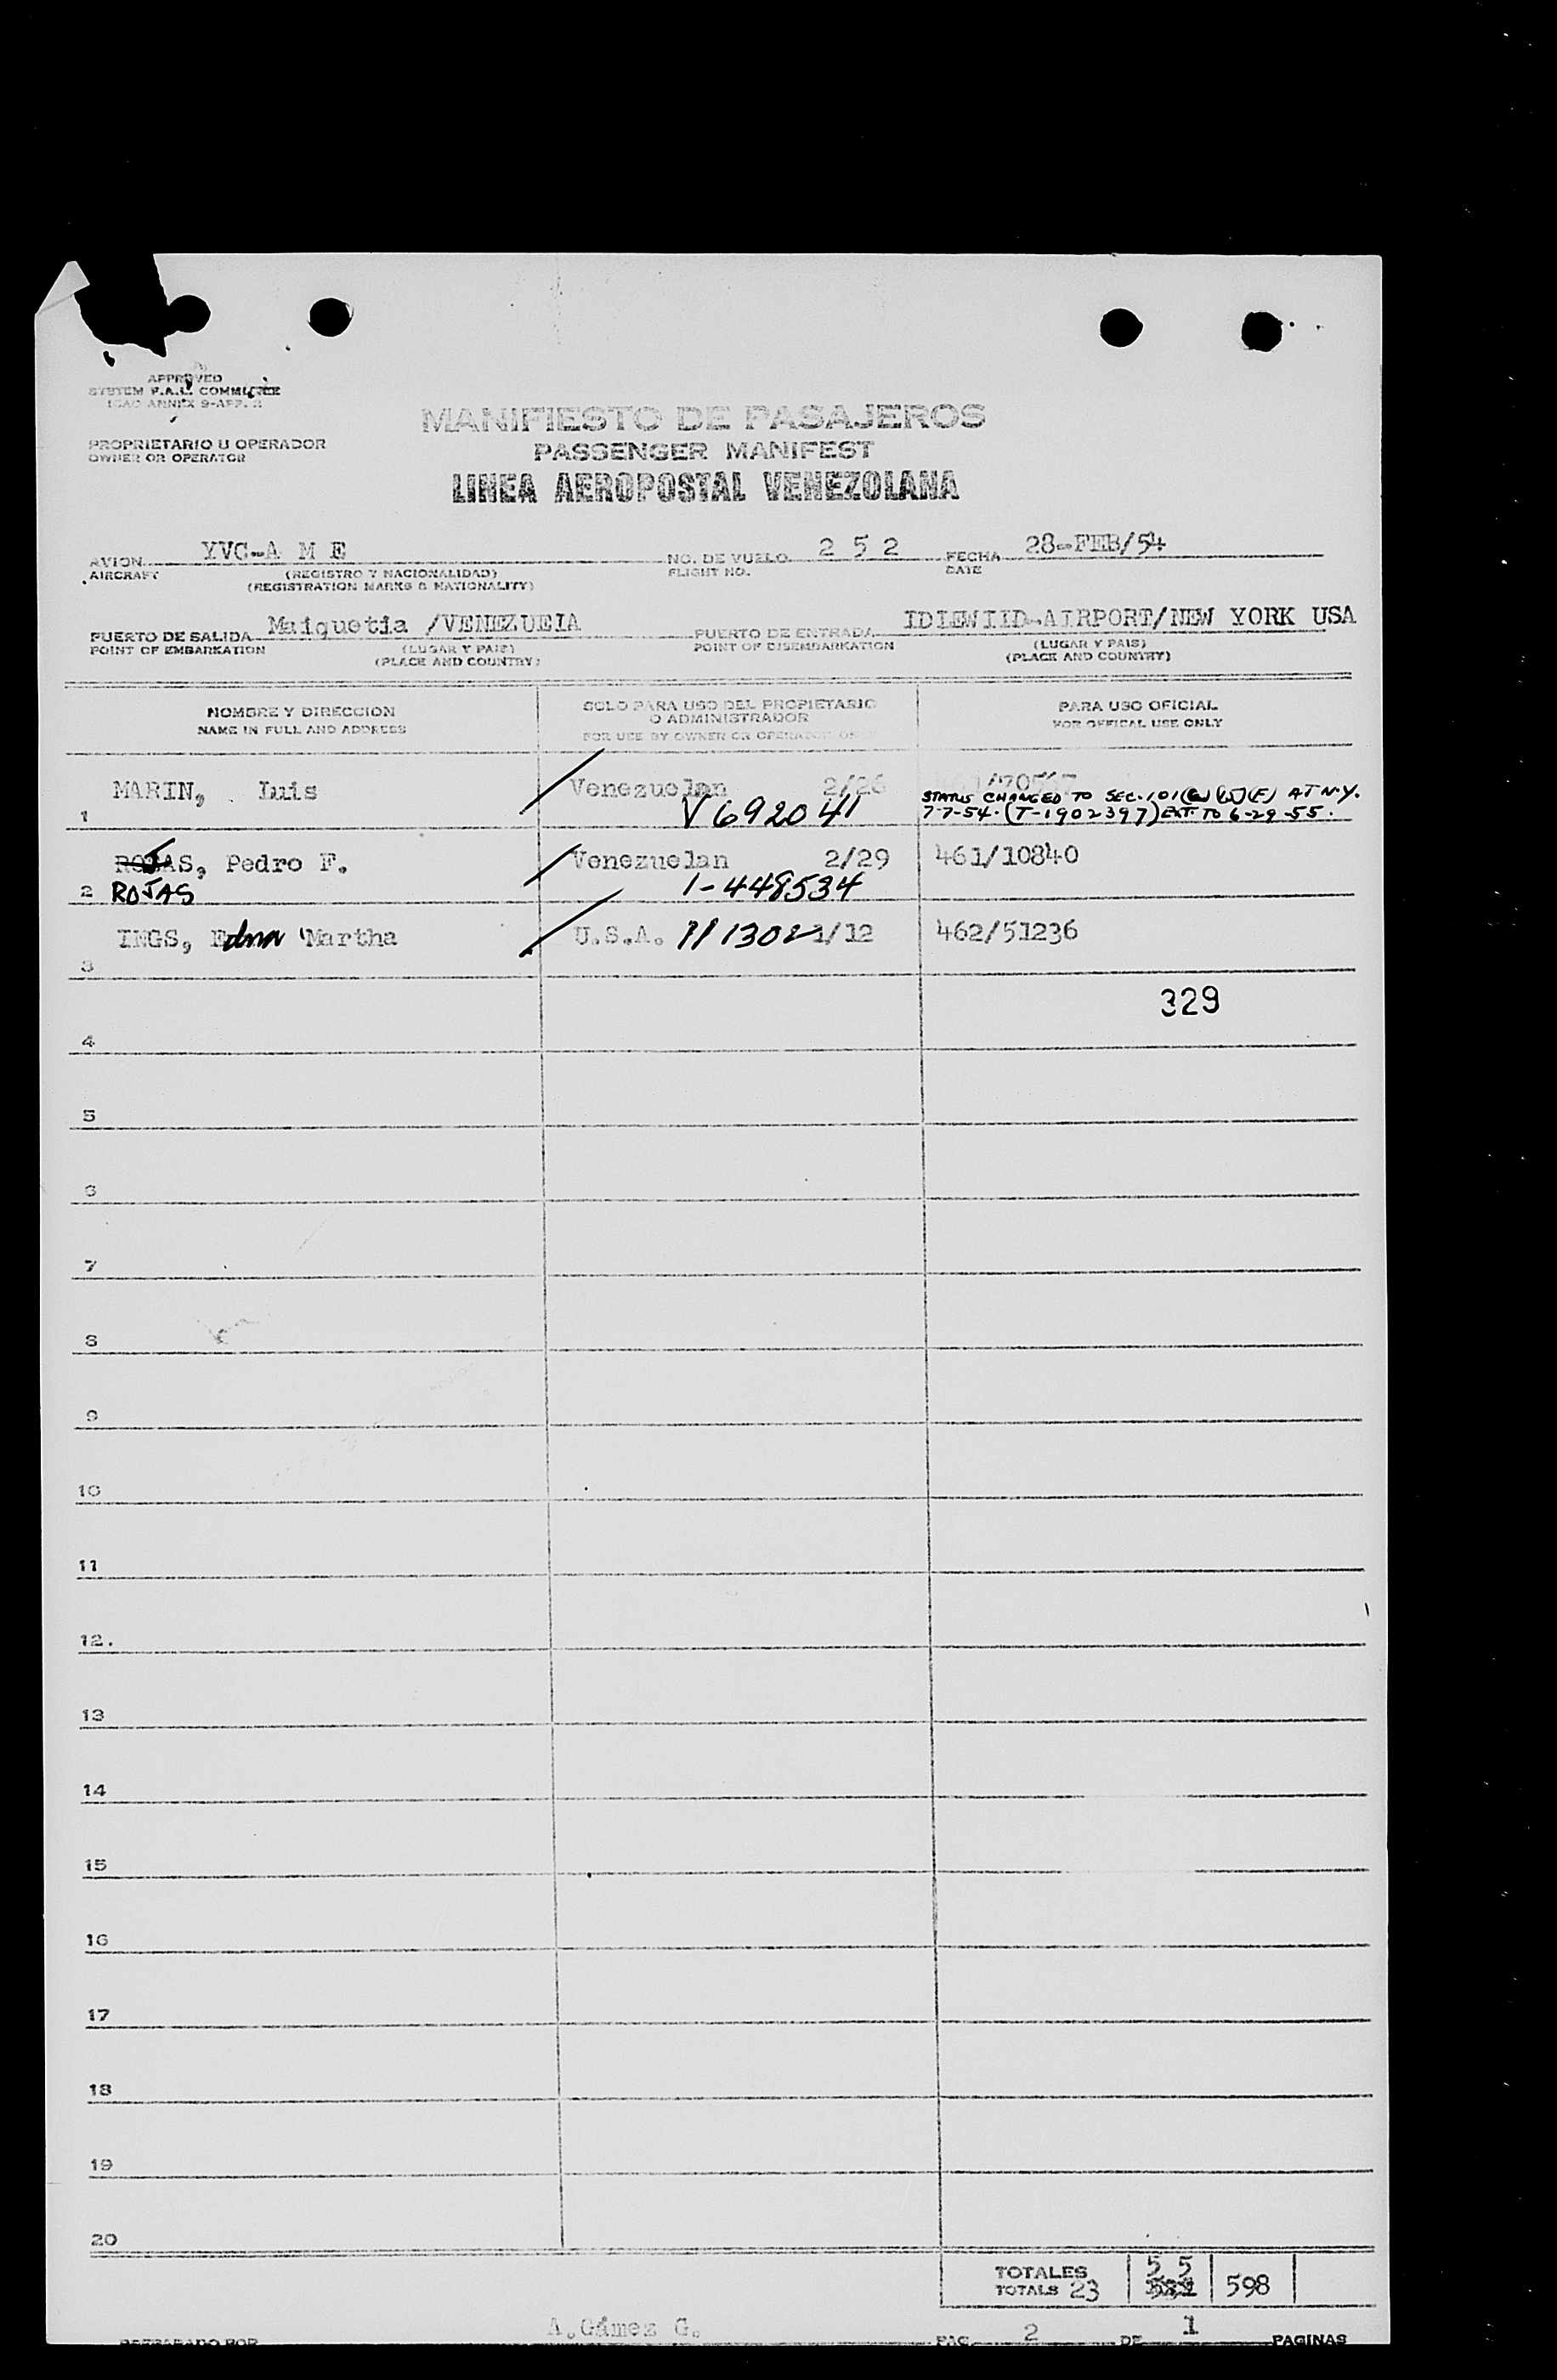 APPROVED
SYSTEM F.A.L. COMMITTEE
ICAO ANNEX 9-APP.
MANIFIESTO DE PASAJEROS
PROPRIETARIO U OPERADOR
OWNER OR OPERATOR
PASSENGER MANIFEST
LINEA AEROPOSTAL VENEZOLANA
AVION YVC-A M E NO. DE VUELO 2 5 2 FECHA 28-FEB/54
AIRCRAFT (REGISTRO Y NACIONALIDAD) FLIGHT NO. DATE
(REGISTRATION MARKS & NATIONALITY)
PUERTO DE SALIDA Maiquetia /VENEZUELA PUERTO DE ENTRADA IDLEWILD-AIRPORT/NEW YORK USA
POINT OF EMBARKATION (LUGAR Y PAIS) POINT OF DISEMBARKATION (LUGAR Y PAIS)
(PLACE AND COUNTRY) (PLACE AND COUNTRY)
NOMBRE Y DIRECCION SOLO PARA USO DEL PROPIETARIO PARA USO OFICIAL
O ADMINISTRADOR
NAME IN FULL AND ADDRESS FOR USE BY OWNER OR OPERATOR ONLY FOR OFFICAL USE ONLY
MARIN, Luis Venezuelan 2/26
STATUS CHANGED TO SEC. 101 (a) (15) (F) AT N.Y.
1 V 692041 7-7-54. (T-1902397) EXT. TO 6-29-55.
ROJAS, Pedro F. Venezuelan 2/29 461/10840
2 ROJAS 1-448534
INGS, Edna Martha U.S.A. 1/12 462/51236
3
329
4
5
6
7
8
9
10
11
12.
13
14
15
16
17
18
19
20
TOTALES 5 5
TOTALS 23 598
A.Gámez G.
PREPARADO POR PAG. 2 DE 1 PAGINAS